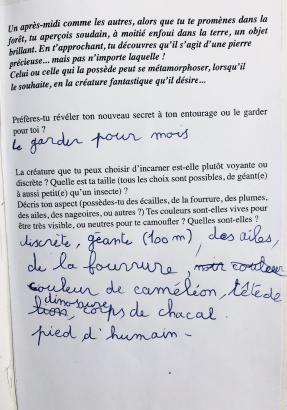 Un après-midi comme les autres, alors que tu te promènes dans la
forêt, tu aperçois soudain, à moitié enfoui dans la terre, un objet
brillant. En t'approchant, tu découvres qu'il s'agit d'une pierre
précieuse... mais pas n'importe laquelle !
Celui ou celle qui la possède peut se métamorphoser, lorsqu'il
le souhaite, en la créature fantastique qu'il désire...
Préfères-tu révéler ton nouveau secret à ton entourage ou le garder
pour toi ?
Le garder pour mois
La créature que tu peux choisir d'incarner est-elle plutôt voyante ou
discrète ? Quelle est ta taille (tous les choix sont possibles, de géant(e)
à aussi petit(e) qu'un insecte) ?
Décris ton aspect (possèdes-tu des écailles, de la fourrure, des plumes,
des ailes, des nageoires, ou autres ?) Tes couleurs sont-elles vives pour
être très visible, ou neutres pour te camoufler ? Quelles sont-elles ?
discrète, géante (100 m), des ailes,
de la fourrure, noir couleur
couleur de caméléon, tête de
dinosaure
lion, corps de chacal.
pied d'humain -